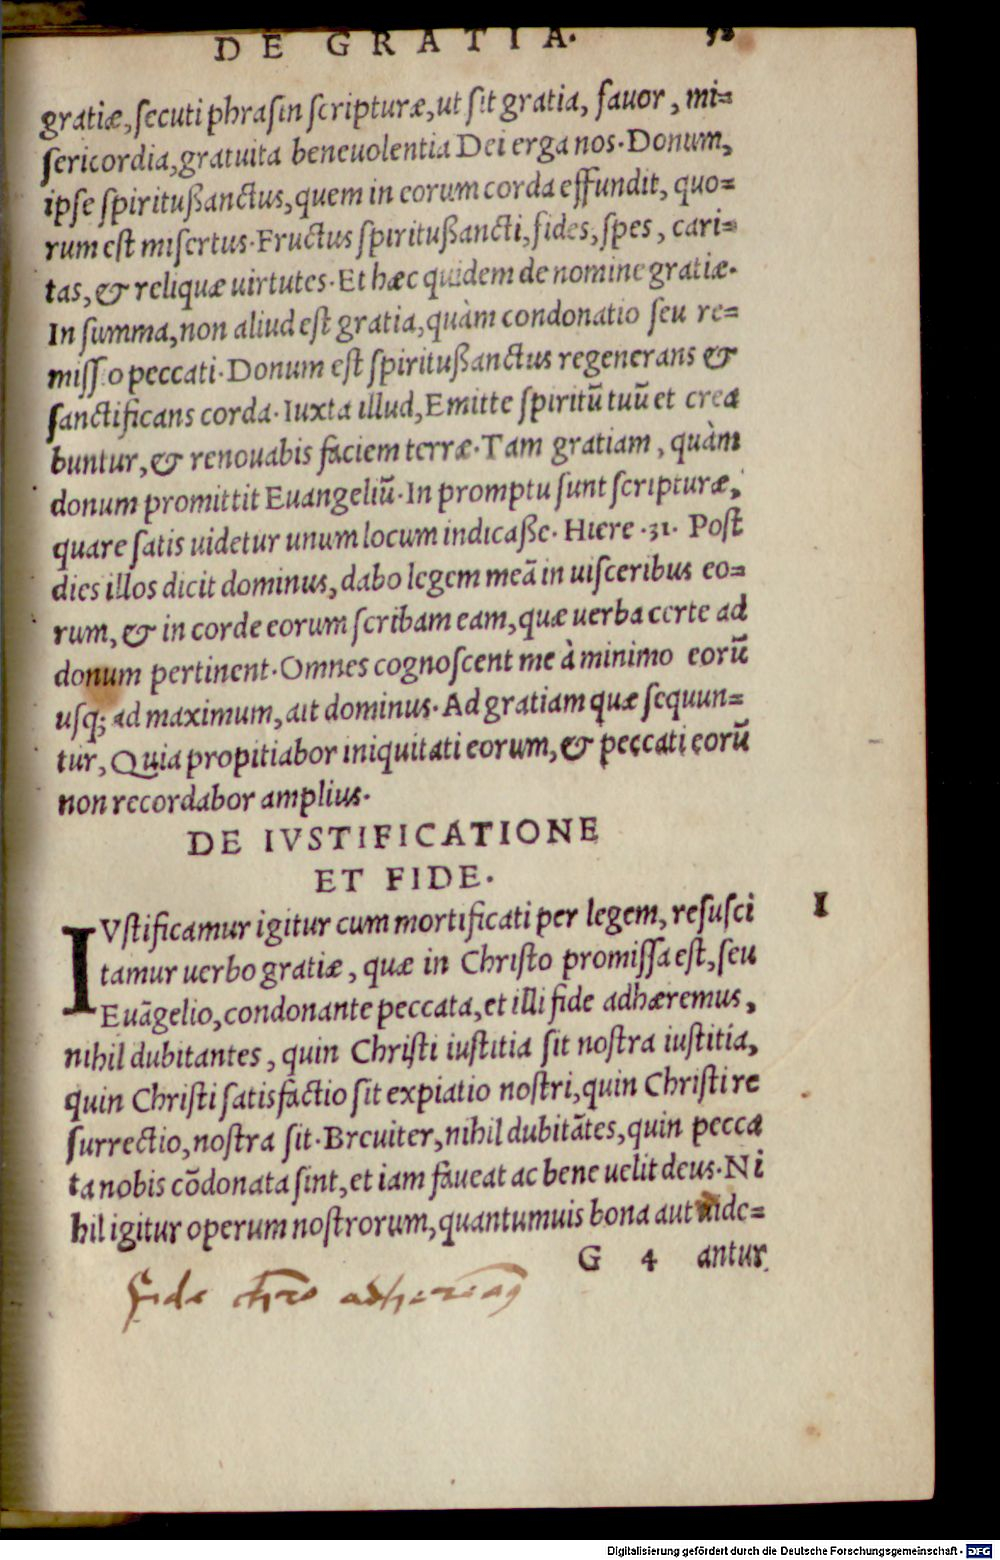 DE GRATIA.
gratiæ, ſecuti phraſin ſcripturæ, ut ſit gratia, fauor, mi=
ſericordia, gratuita beneuolentia Dei erga nos. Donum,
ipſe ſpiritußanctus, quem in eorum corda effundit, quo=
rum eſt miſertus. Fructus ſpiritußancti, fides, ſpes, cari=
tas, & reliquæ uirtutes. Et hæc quidem de nomine gratiæ.
In ſumma, non aliud eſt gratia, quàm condonatio ſeu re=
miſſio peccati. Donum eſt ſpiritußanctus regenerans &
ſanctificans corda. Iuxta illud, Emitte ſpiritũ tuũ et crea
buntur, & renouabis faciem terræ. Tam gratiam, quàm
donum promittit Euangeliũ. In promptu ſunt ſcripturæ,
quare ſatis uidetur unum locum indicaße. Hiere .31. Poſt
dies illos dicit dominus, dabo legem meã in uiſceribus eo=
rum, & in corde eorum ſcribam eam, quæ uerba certe ad
donum pertinent. Omnes cognoſcent me à minimo eorũ
uſq; ad maximum, ait dominus. Ad gratiam quæ ſequun=
tur, Quia propitiabor iniquitati eorum, & peccati eorũ
non recordabor amplius.
DE IVSTIFICATIONE
ET FIDE.
IVſtificamur igitur cum mortificati per legem, reſuſci
tamur uerbo gratiæ, quæ in Chriſto promiſſa eſt, ſeu
Euãgelio, condonante peccata, et illi fide adhæremus,
nihil dubitantes, quin Chriſti iuſtitia ſit noſtra iuſtitia,
quin Chriſti ſatisfactio ſit expiatio noſtri, quin Chriſti re
ſurrectio, noſtra ſit. Breuiter, nihil dubitãtes, quin pecca
ta nobis cõdonata ſint, et iam faueat ac bene uelit deus. Ni
hil igitur operum noſtrorum, quantumuis bona aut uide=
I
G 4 antur
Digitalisierung gefördert durch die Deutsche Forschungsgemeinschaft - DFG